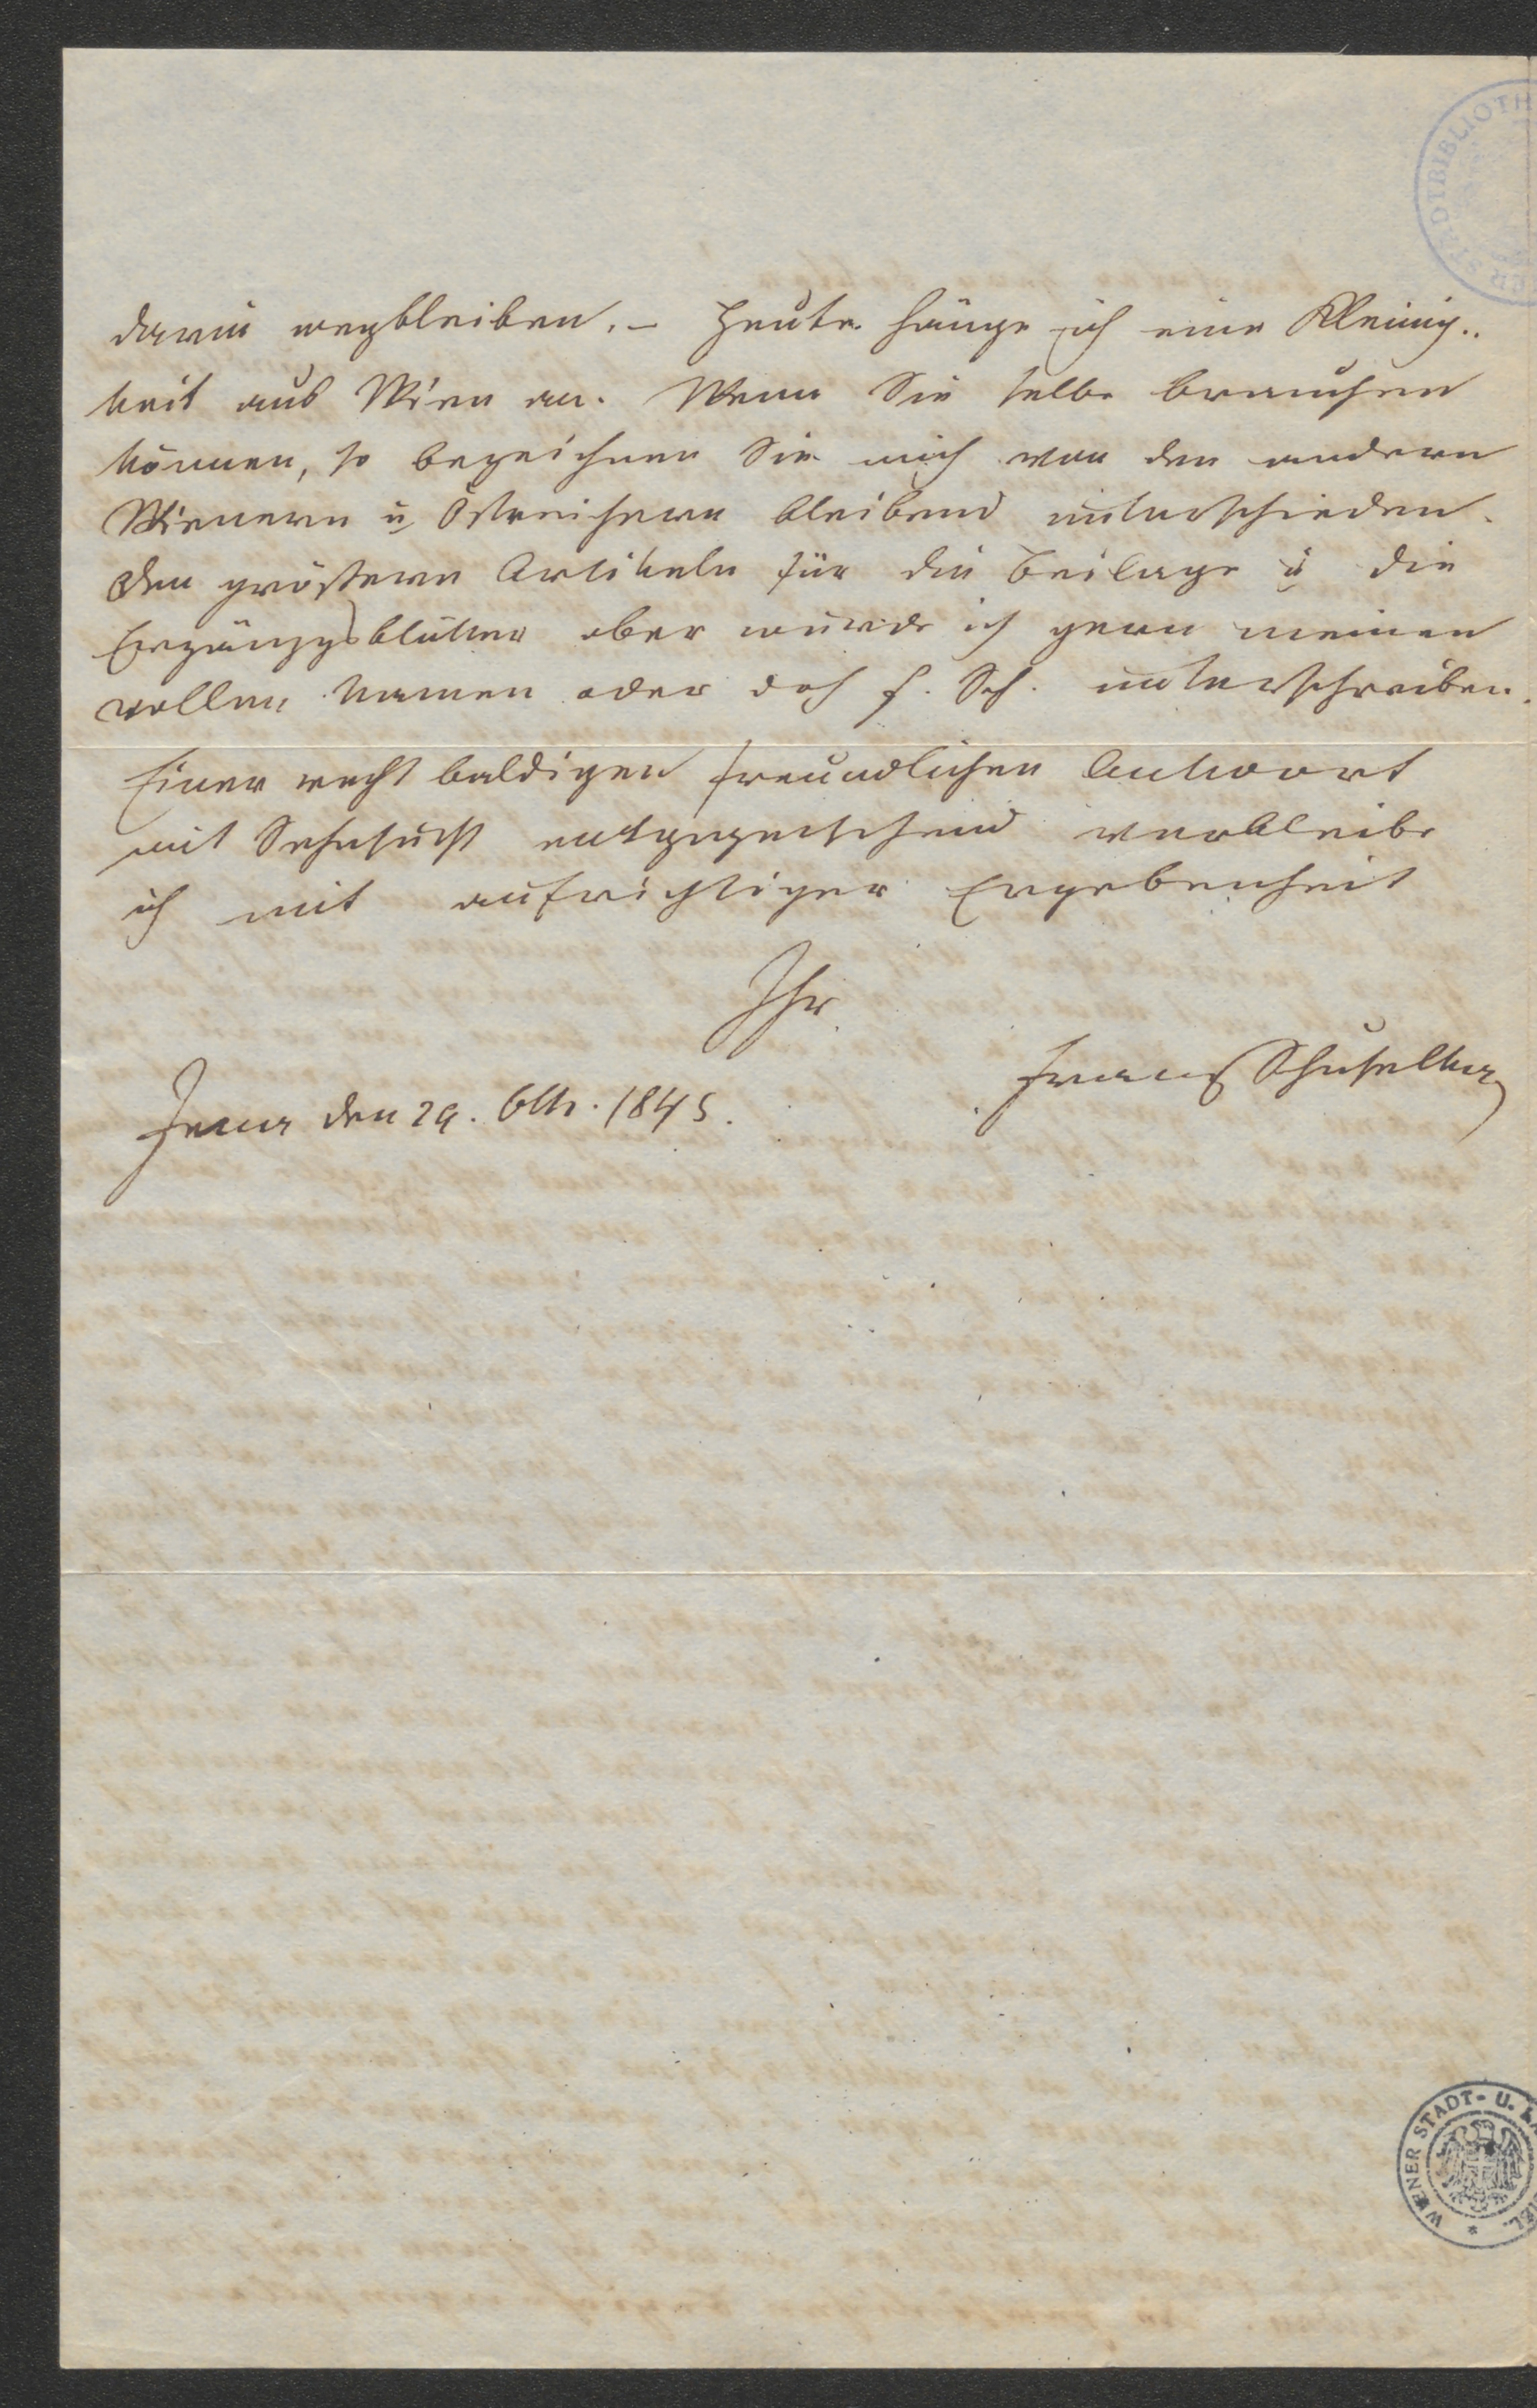 darin wegbleiben. – Heute hänge ich eine Kleinig-
keit aus Wien an. Wenn Sie selbe brauchen
können, so bezeichnen Sie mich von den andern
Wienern u Östreichern bleibend unterschieden.
Den größern Artikeln für die Beilage u die
Ergänzgsblätter aber würde ich gern meinen
vollen Namen oder doch F. Sch. unterschreiben.
Einer recht baldigen freundlichen Antwort
mit Sehnsucht entgegensehend verbleibe
ich mit aufrichtiger Ergebenheit
Ihr
Franz Schuselka
Jena den 29. Okt. 1845.
WIENER STADT- U.